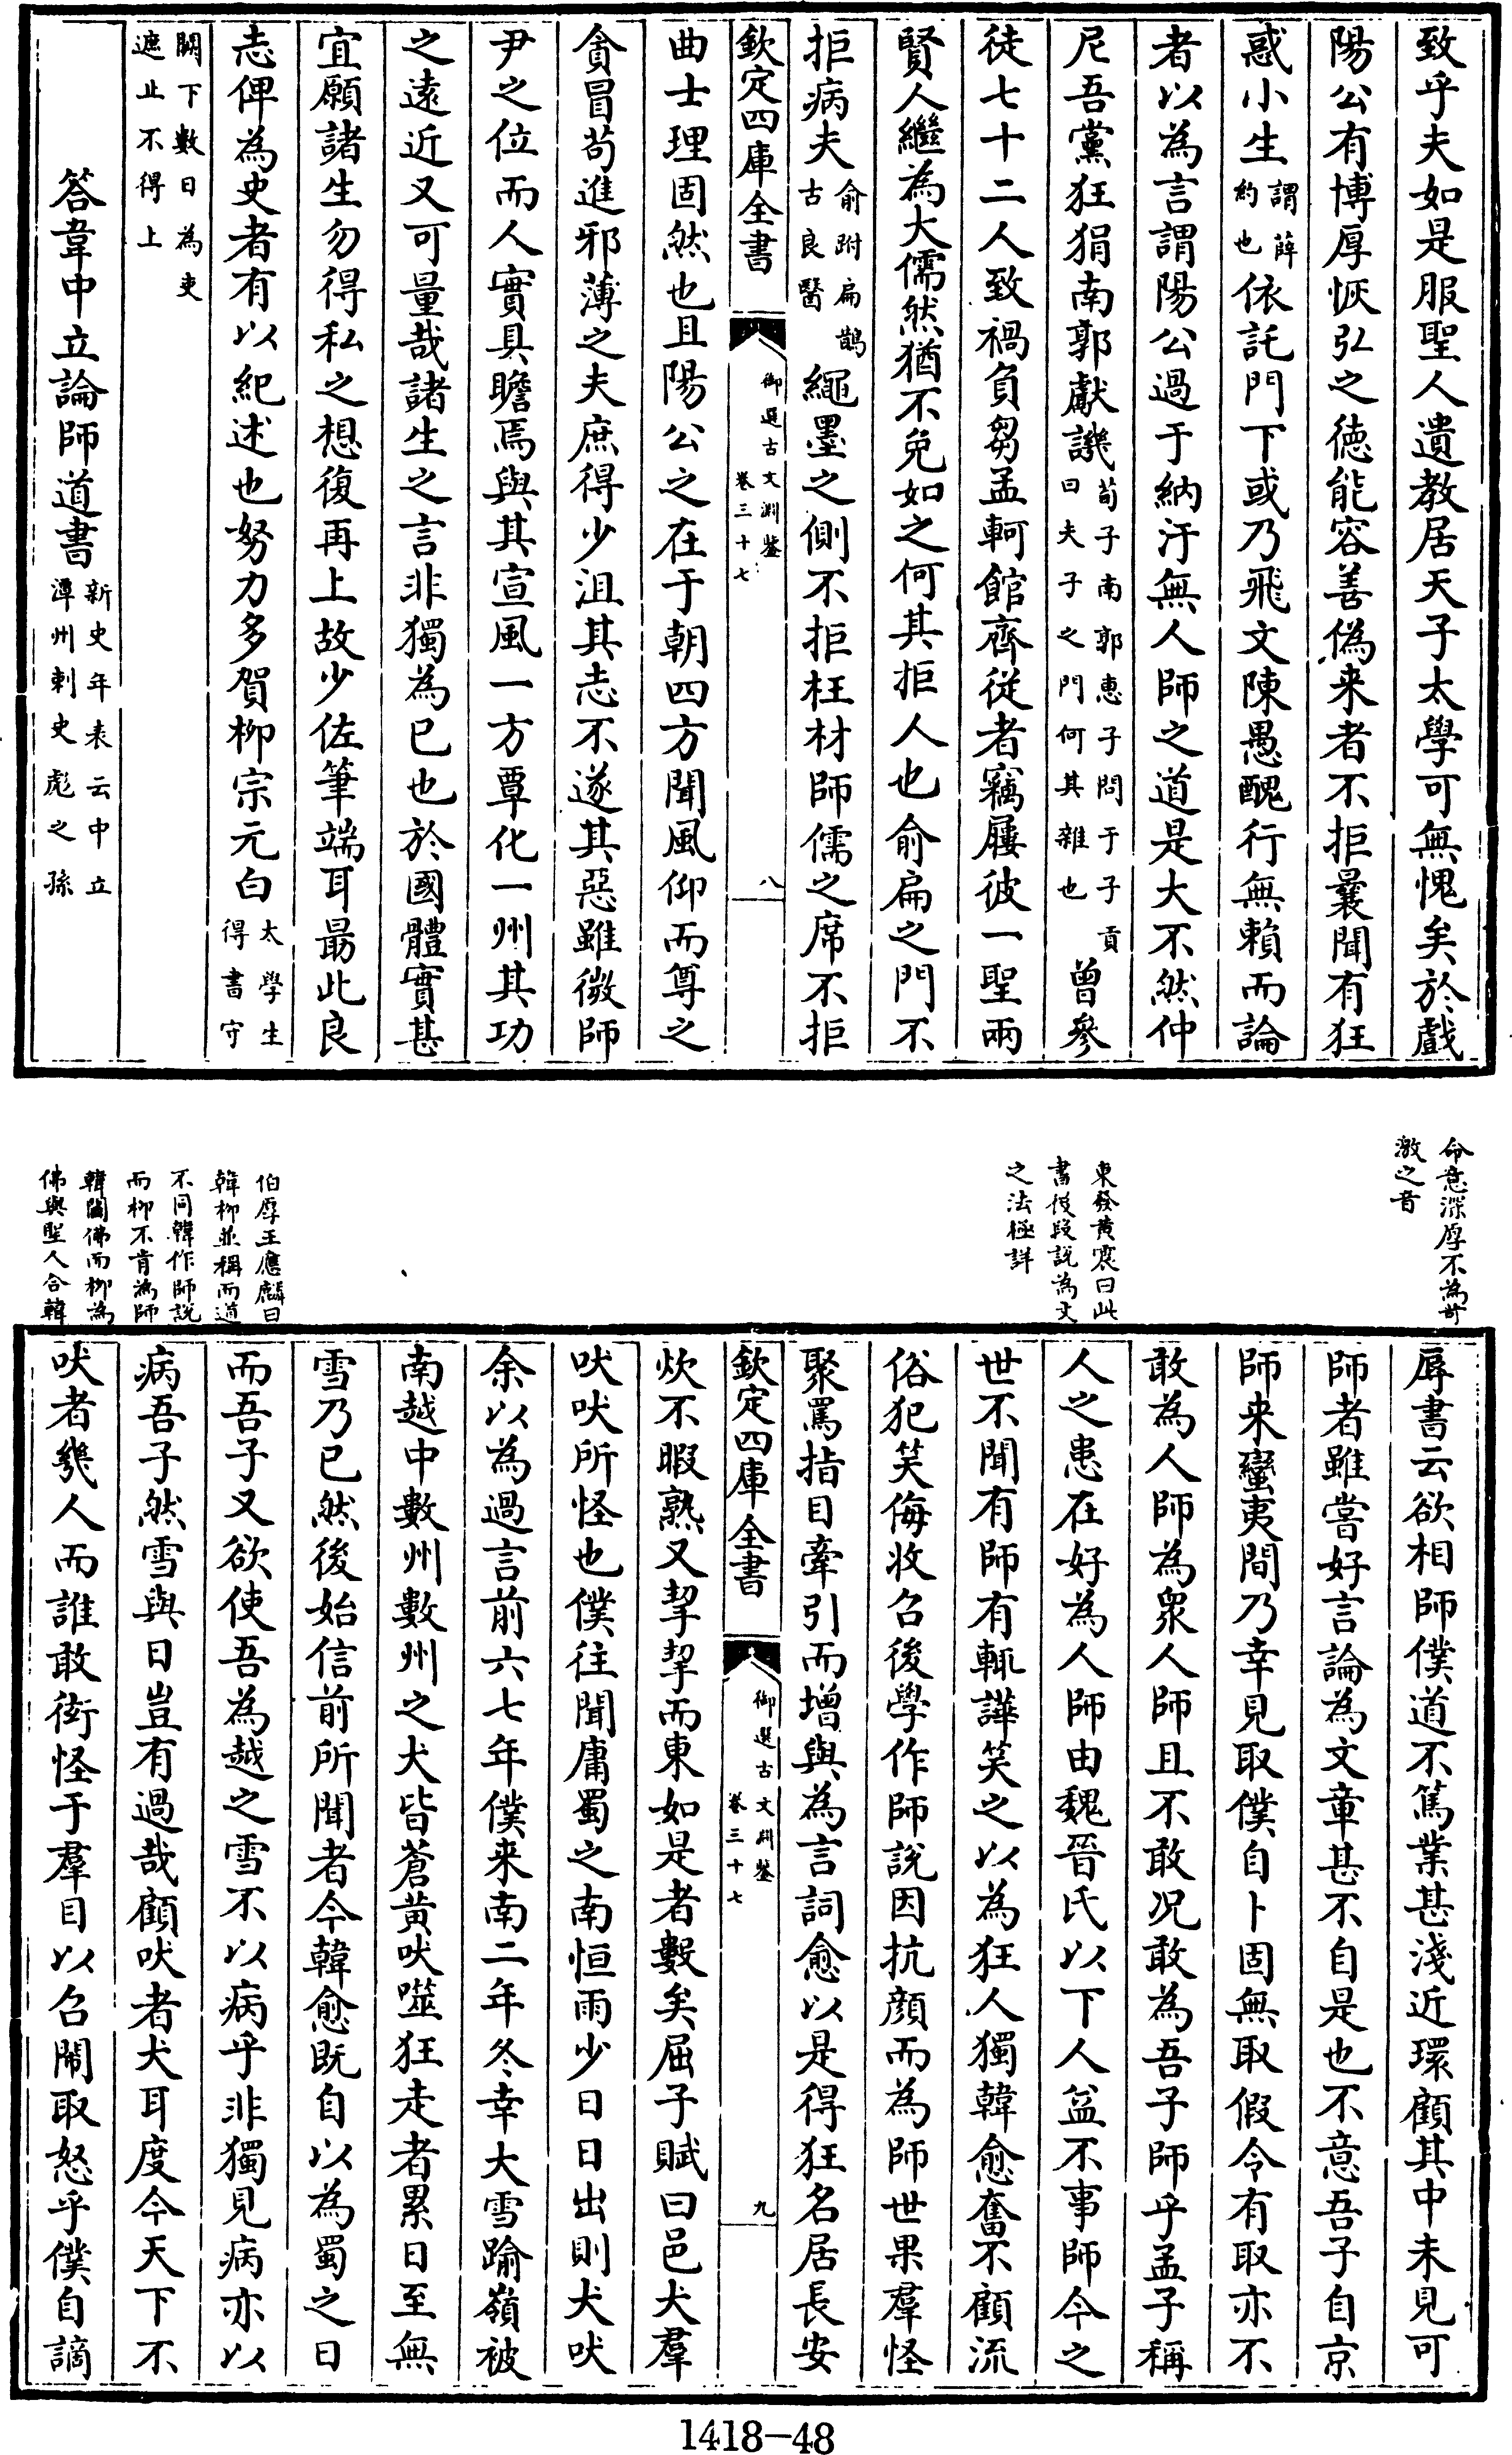 致乎夫如是服聖人遺教居天子太學可無愧矣於戲
陽公有博厚恢弘之德能容善偽来者不拒曩聞有狂
惑小生謂薛約也依託門下或乃飛文陳愚醜行無賴而論
者以為言謂陽公過于納汙無人師之道是大不然仲
尼吾黨狂狷南郭獻譏荀子南郭惠子問于子貢曰夫子之門何其雜也曾參
徒七十二人致禍負芻孟軻館齊從者竊屨彼一聖兩
賢人繼為大儒然猶不免如之何其拒人也俞扁之門不
拒病夫俞跗扁鵲古良醫繩墨之側不拒枉材師儒之席不拒
欽定四庫全書 御選古文淵鑒 卷三十七 八
曲士理固然也且陽公之在于朝四方聞風仰而尊之
貪冒苟進邪薄之夫庶得少沮其志不遂其惡雖微師
尹之位而人實具瞻焉與其宣風一方覃化一州其功
之遠近又可量哉諸生之言非獨為已也於國體實甚
宜願諸生勿得私之想復再上故少佐筆端耳最此良
志俾為史者有以紀述也努力多賀柳宗元白太學生得書守
闕下數日為吏遮止不得上
答韋中立論師道書新史年表云中立潭州刺史彪之孫
命意深厚不為苛
激之音
東發黄震曰此
書後段説為文
之法極詳
伯厚王應麟曰
韓柳並稱而道
不同韓作師説
而柳不肯為師
韓闢佛而柳為
佛與聖人合韓
辱書云欲相師僕道不篤業甚淺近環顧其中未見可
師者雖嘗好言論為文章甚不自是也不意吾子自京
師来蠻夷間乃幸見取僕自卜固無取假令有取亦不
敢為人師為衆人師且不敢况敢為吾子師乎孟子稱
人之患在好為人師由魏晉氏以下人益不事師今之
世不聞有師有輒譁笑之以為狂人獨韓愈奮不顧流
俗犯笑侮收召後學作師説因抗顔而為師世果羣怪
聚罵指目牽引而增與為言詞愈以是得狂名居長安
欽定四庫全書 御選古文淵鑒 卷三十七 九
炊不暇熟又挈挈而東如是者數矣屈子賦曰邑犬羣
吠吠所怪也僕往聞庸蜀之南恒雨少日日出則犬吠
余以為過言前六七年僕来南二年冬幸大雪踰嶺被
南越中數州數州之犬皆蒼黄吠噬狂走者累日至無
雪乃已然後始信前所聞者今韓愈既自以為蜀之日
而吾子又欲使吾為越之雪不以病乎非獨見病亦以
病吾子然雪與日豈有過哉顧吠者犬耳度今天下不
吠者幾人而誰敢衒怪于羣目以召鬧取怒乎僕自謫
1418-48